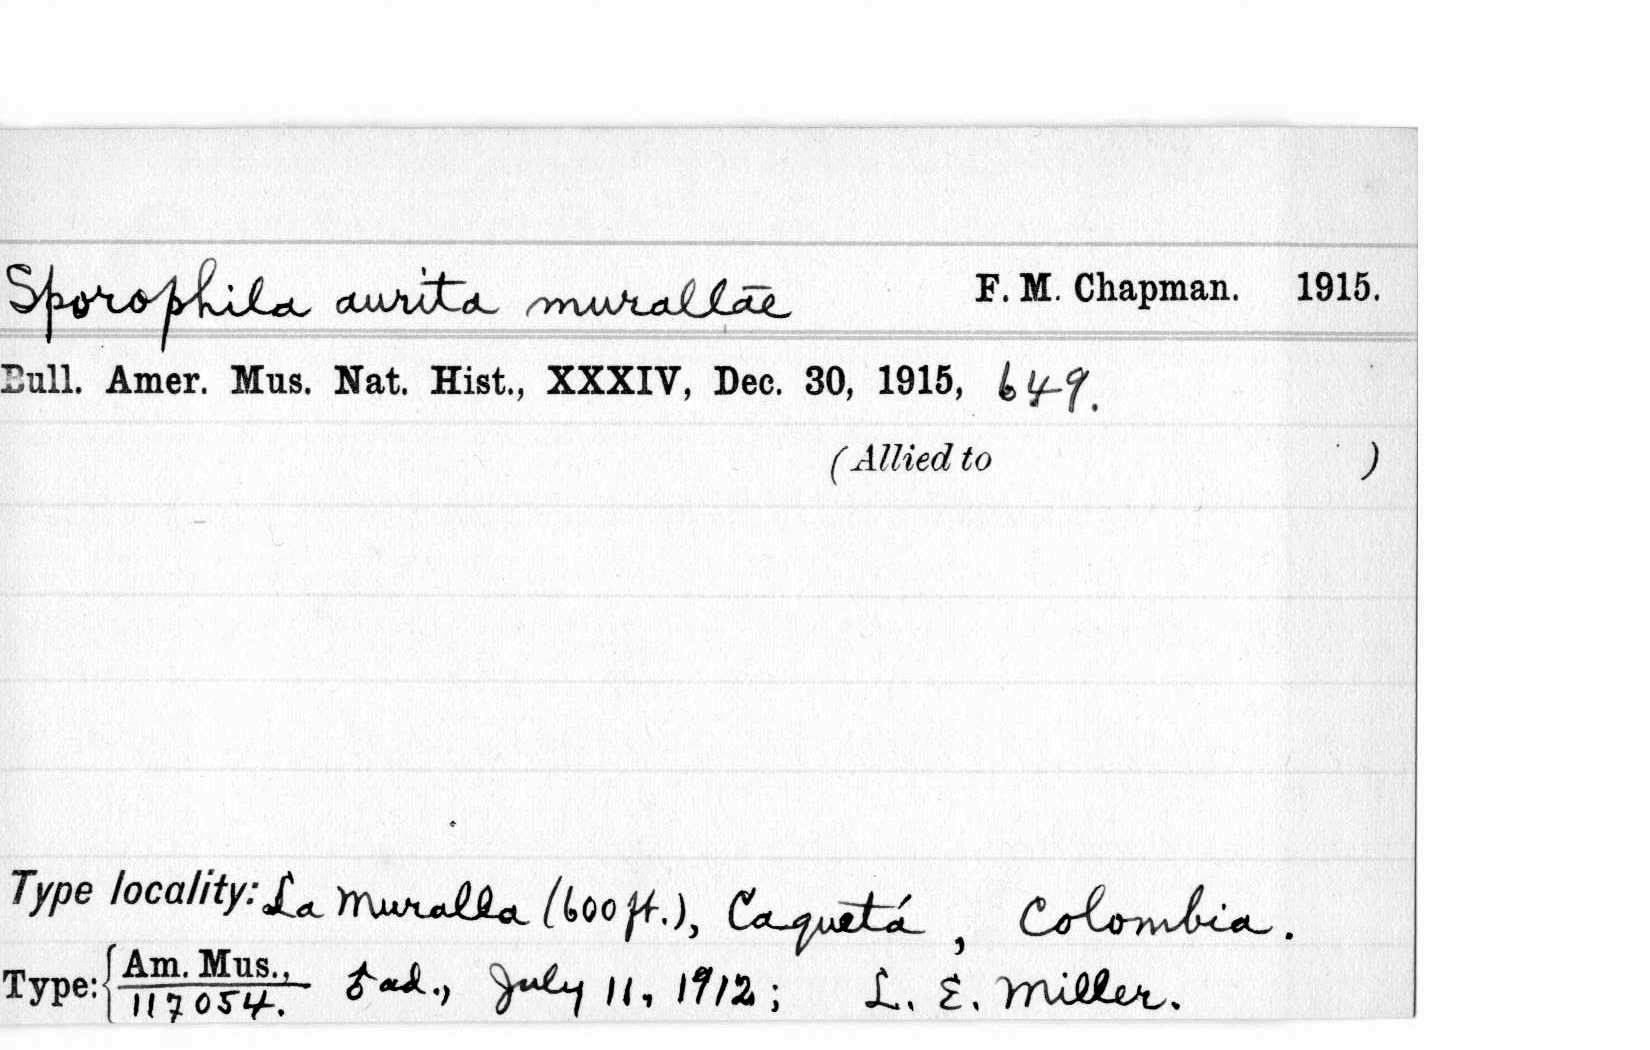 Sporophila aurita murallae F. M. Chapman. 1915.
Bull. Amer. Mus. Nat. Hist., XXXIV, Dec. 30, 1915, 649.
(Allied to )
Type locality: La Muralla (600 ft.), Caquetá, Colombia.
Type: Am. Mus., 117054. ad., July 11, 1912; L. E. Miller.